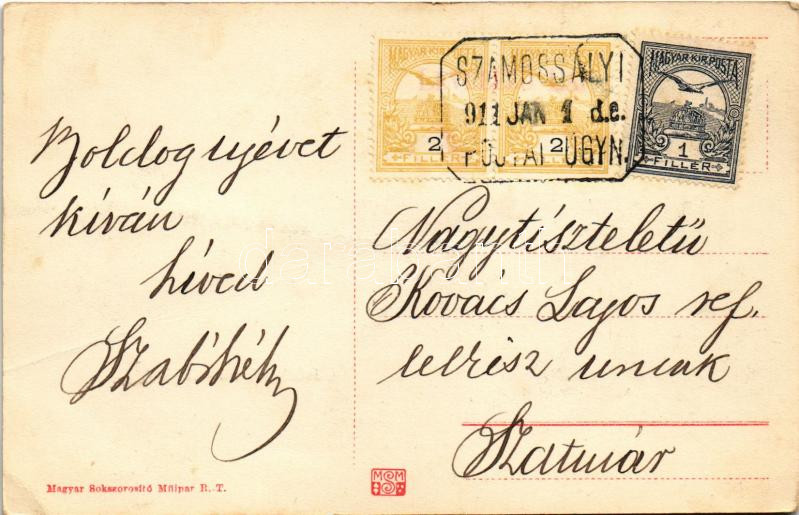 MAGYAR KIR. POSTA
MAGYAR KIR. POSTA
MAGYAR KIR. POSTA
2
2
1
FILLÉR
FILLÉR
FILLÉR
SZAMOSSÁLYI
911 JAN 1 d.e.
POSTAI ÜGYN.
Boldog ujévet
kíván
híved
Nagytiszteletű
Kovács Lajos ref.
lelkész urnak
Szatmár
Magyar Sokszorosító Műipar R.-T.
MSM
darabanth